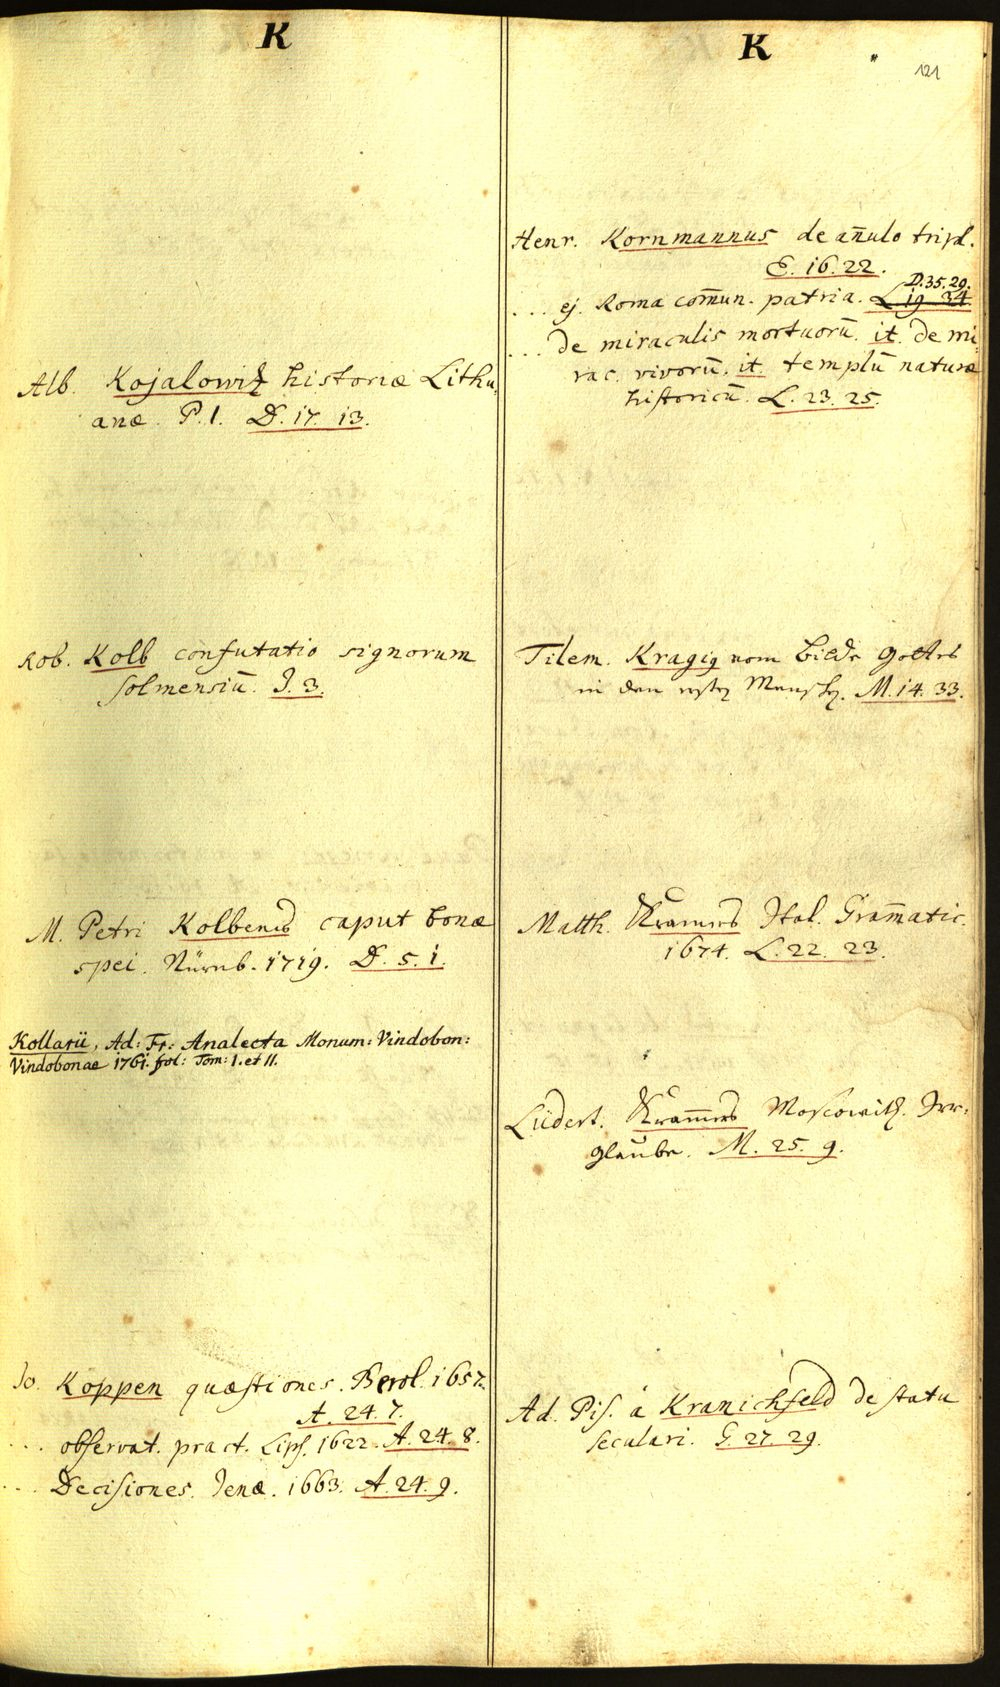 K
Alb. Kojalowitz historiæ Lithu,
anæ. P. I. D. 17. 13.
Rob. Kolb confutatio signorum
solmensiū. J. 3.
M. Petri Kolbens caput bonæ
spei. Nürnb. 1719. D. 5. 1.
Kollarii, Ad: Fr: Analecta Monum: Vindobon:
Vindobonae 1761. fol: Tom: I. et II.
Jo. Koppen quæstiones. Berol. 1657.
A. 24. 7.
... observat. pract. Lips. 1622. A. 24. 8.
... Decisiones. Jenæ. 1663. A. 24. 9.
K
121
Henr. Kornmannus de an̄ulo tripl.
E. 16. 22.
D. 35. 29.
... ej. Roma com̄un. patria. L. 19. 34.
... de miraculis mortuorū. it. De mi,
rac. vivorū. it. templū naturæ
historicū. L. 23. 25.
Tilem. Kragig vom Bilde Gottes
in den ersten Menschen. M. 14. 33.
Matth. Kramers Ital. Gram̄atic.
1674. L. 22. 23.
Lüdert. Kram̄ers Moscowitz. Irr,
glaube. M. 25. 9.
Ad. Pis. à Kranichfeld de statu
seculari. G. 27. 29.